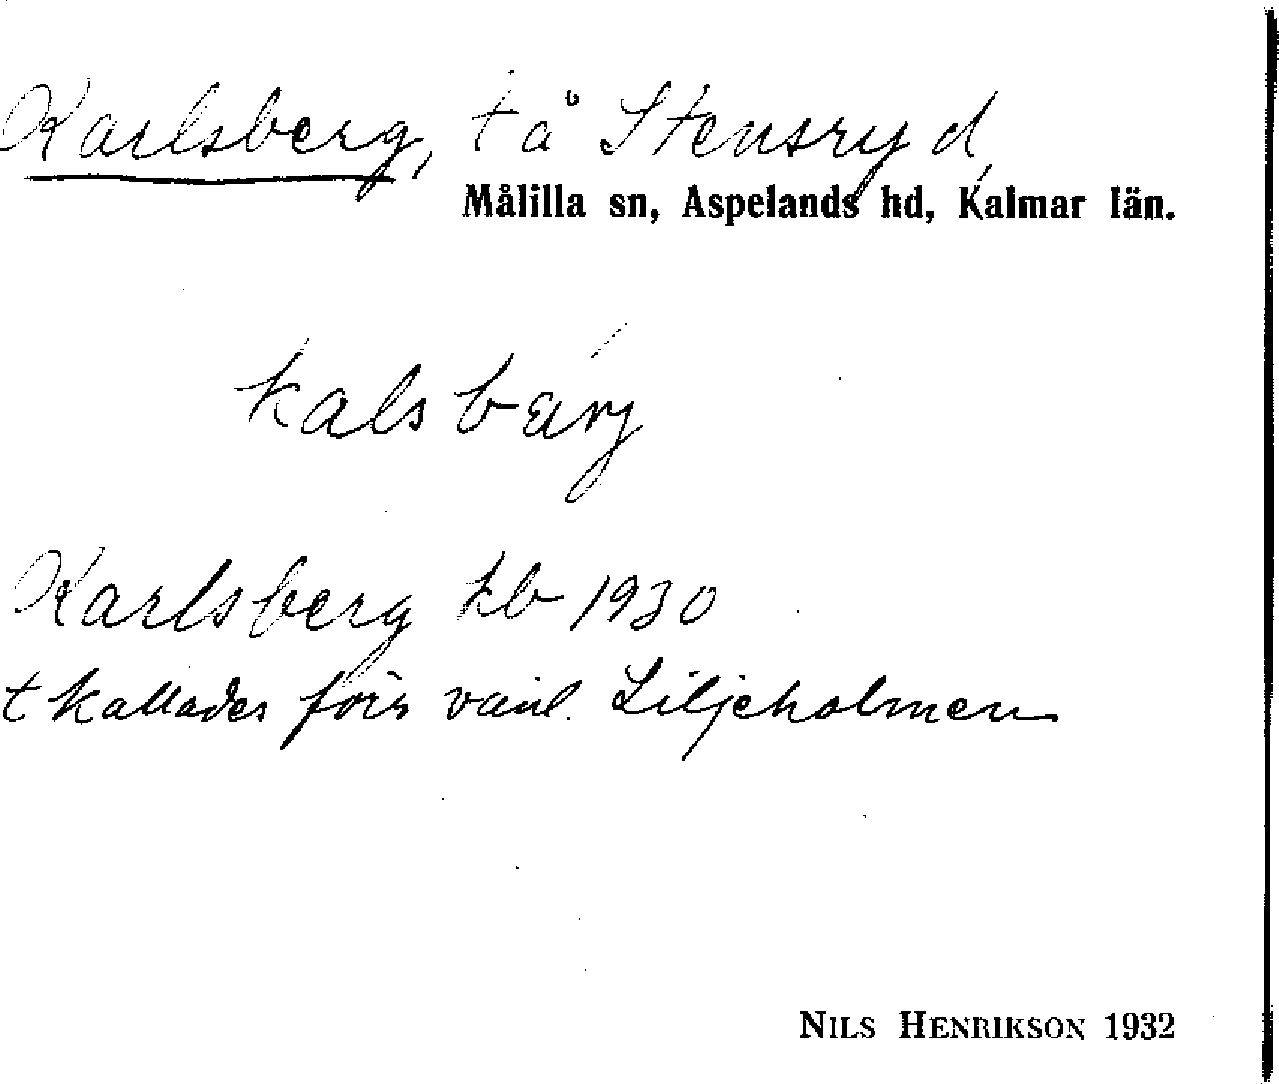 Karlsberg, t å Stensryd,
Målilla sn, Aspelands hd, Kalmar län.
kalsbärj
Karlsberg kb 1930
t kallades förr vanl. Liljeholmen
NILS HENRIKSON 1932